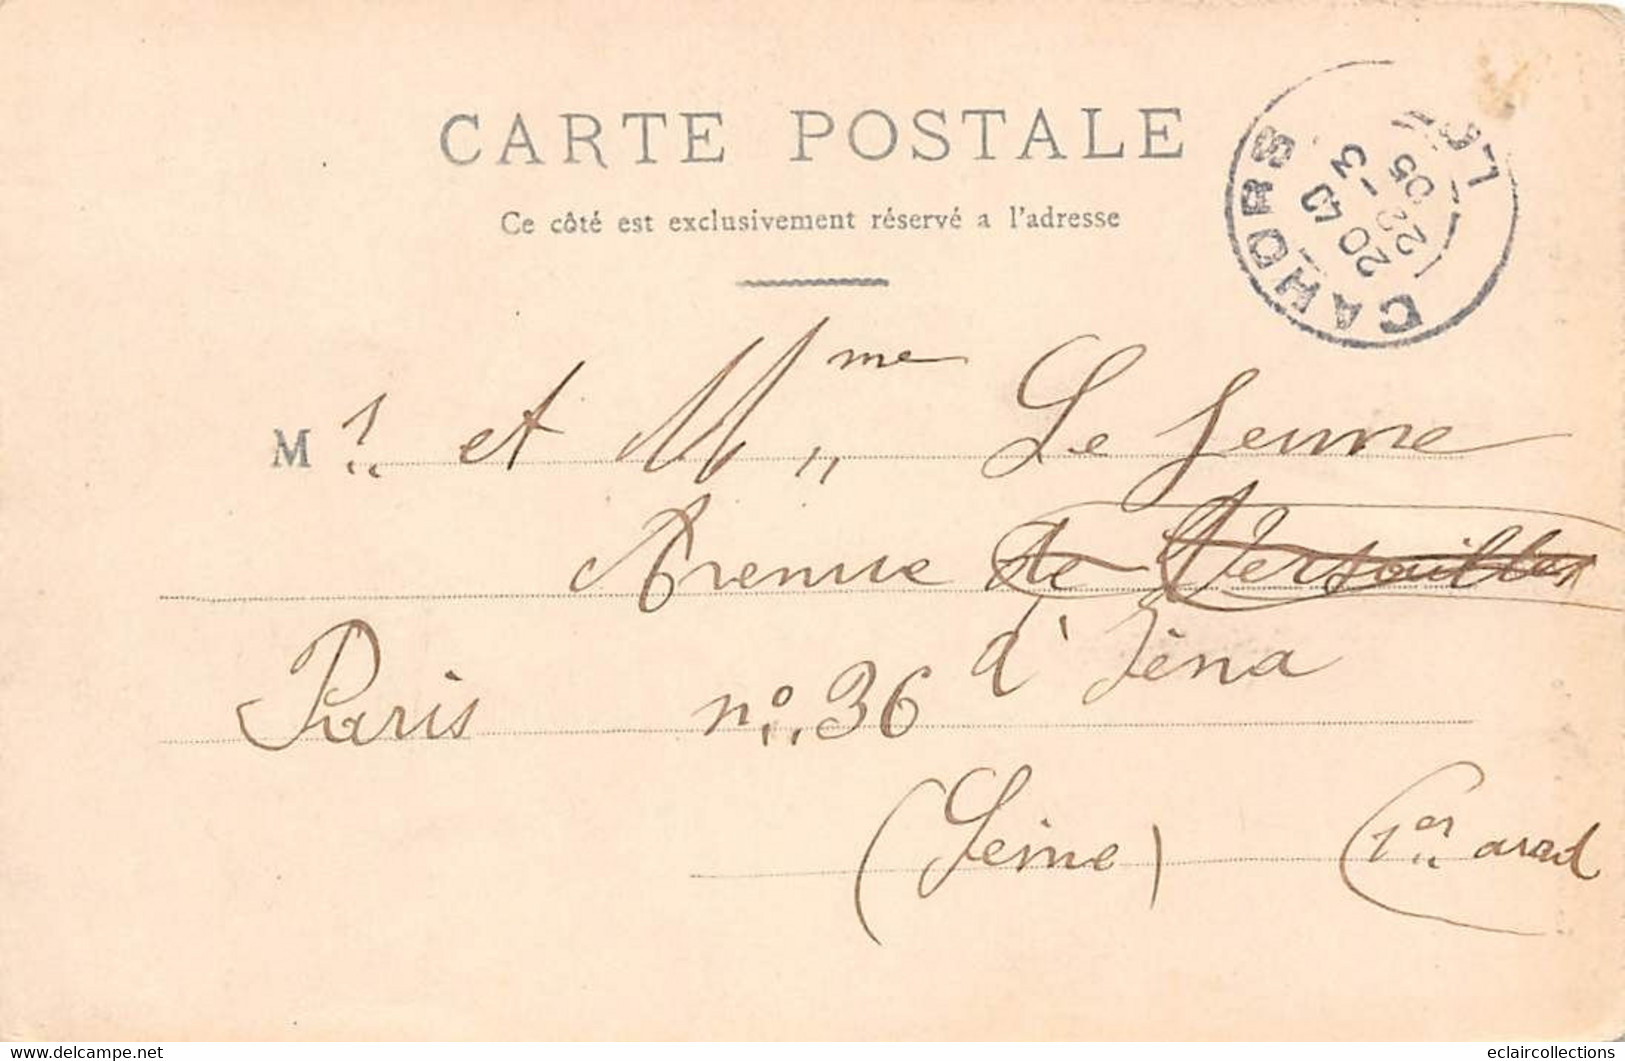 CARTE POSTALE
Ce côté est exclusivement réservé a l'adresse
CAHORS
20 40
22 -3
05
LOT
Mr. et Mme Le Jeune
Avenue de Versailles
d'Iéna
Paris no. 36
(Seine) (1er arrd
eclaircollections